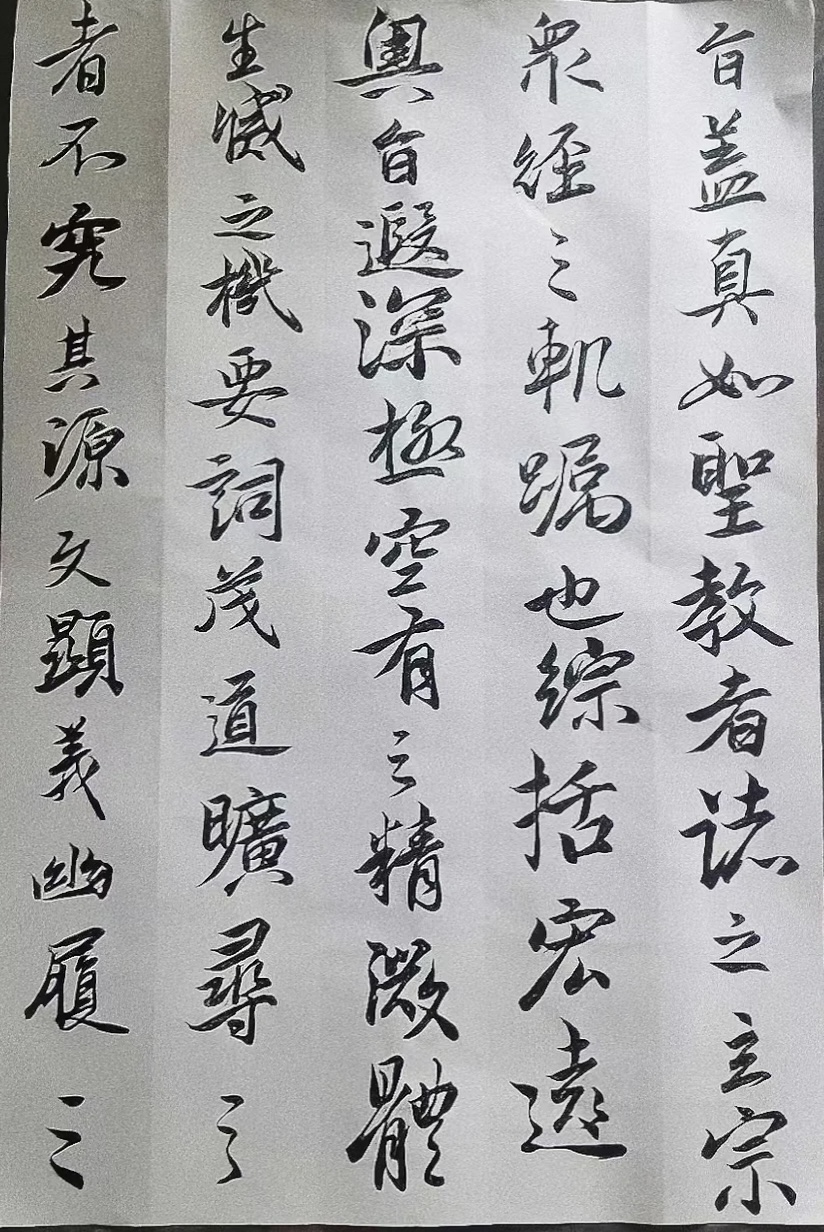 旨盖真如聖教者諸之主宗
衆經之軌躅也綜括宏遠
奥旨遐深極空有之精微體
生滅之機要詞茂道曠尋之
者不究其源文顯義幽履之